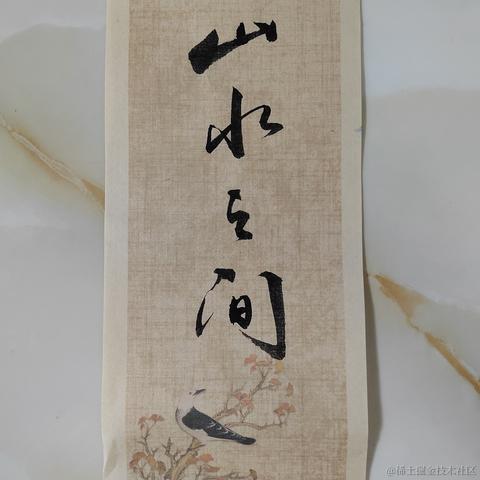 山水之间
@稀土掘金技术社区